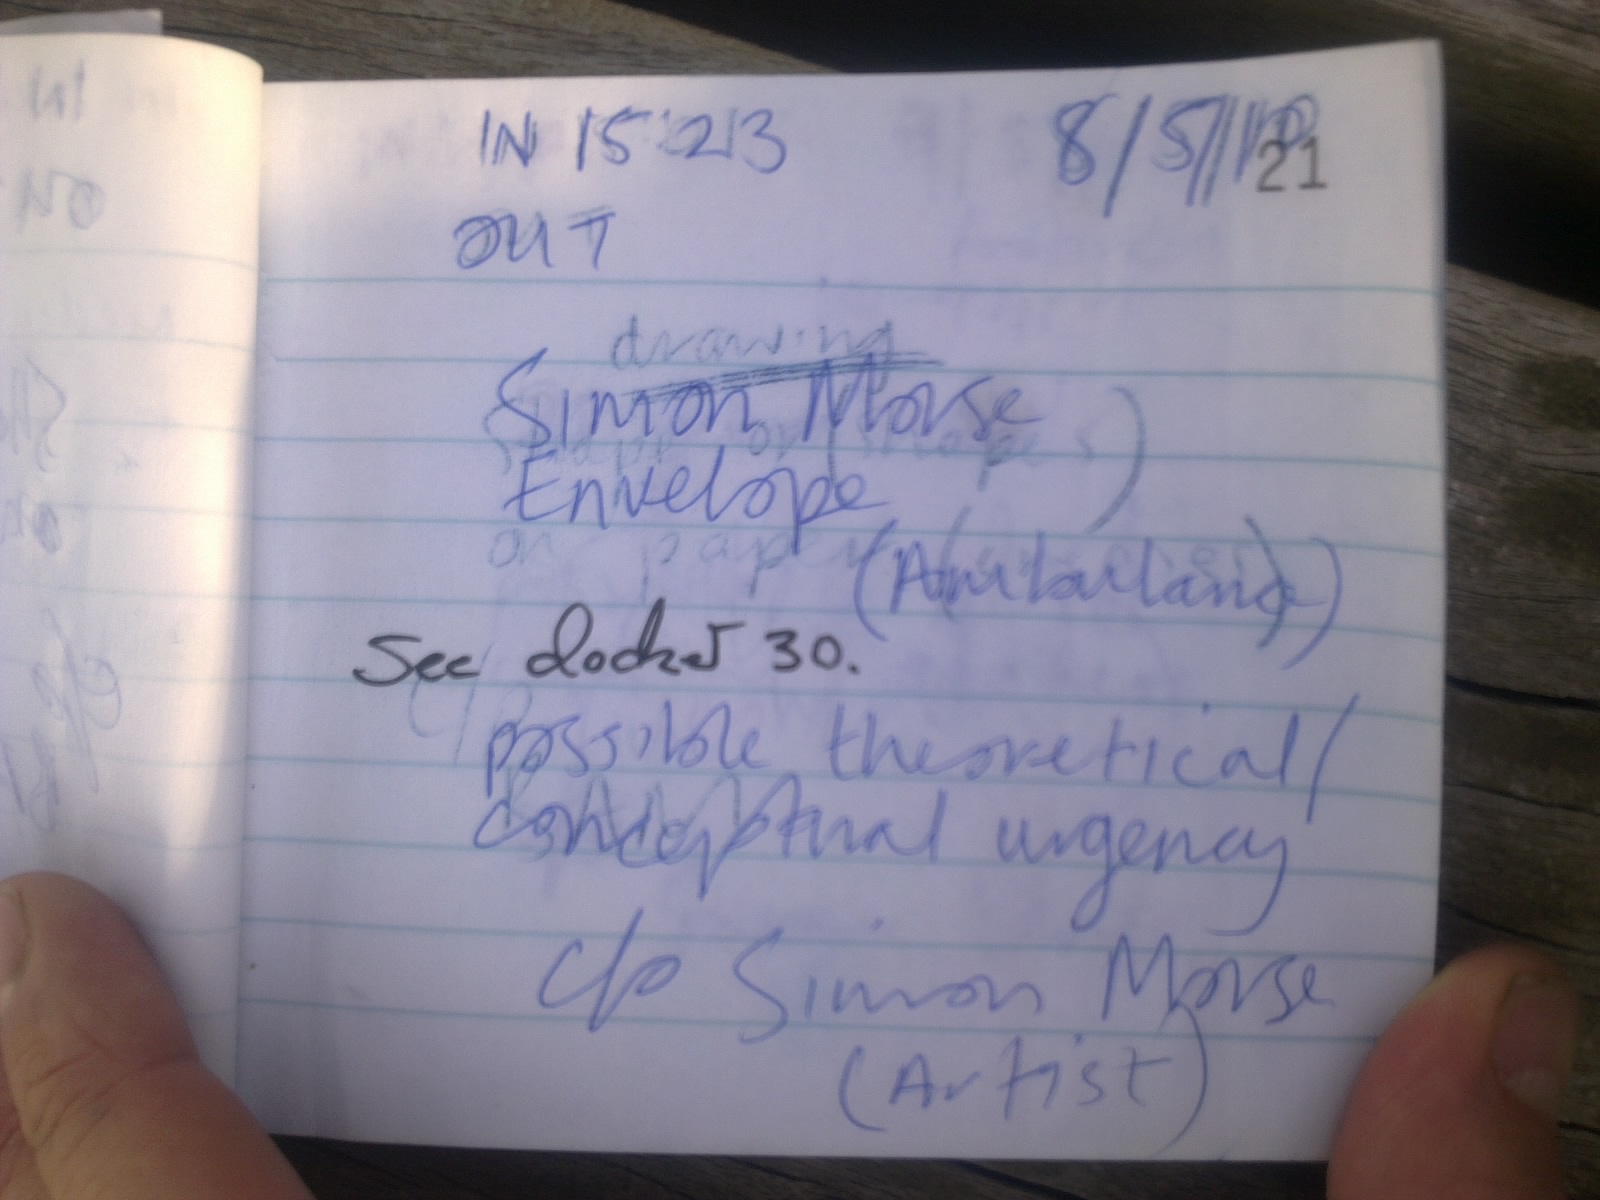 IN 15:23 8/5/10
21
OUT
drawing
Simon Morse
Envelope
on paper
(Ambulance)
See docket 30.
possible theoretical/
conceptual urgency
c/o Simon Morse
(Artist)